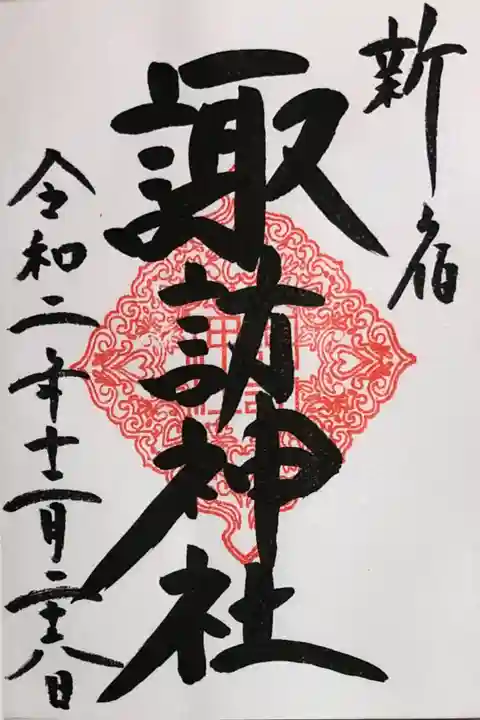 新宿
諏訪神社
令和二年十二月二十八日